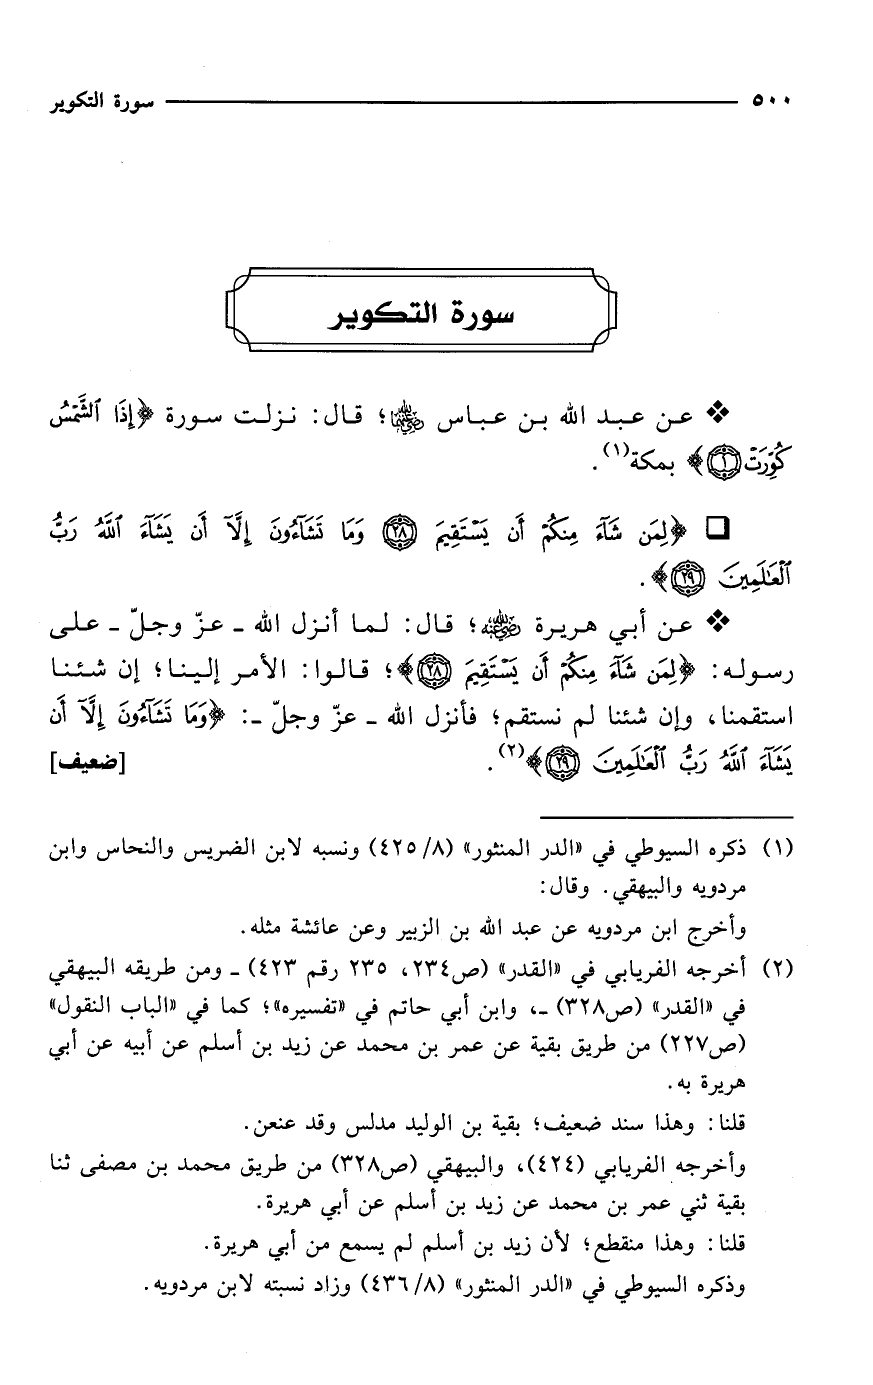 ٥٠٠ سورة التكوير
سورة التكوير
❖ عن عبد الله بن عباس رضي الله عنهما؛ قال: نزلت سورة ﴿إِذَا ٱلشَّمْسُ
كُوِّرَتْ ١﴾ بمكة(١).
❏ ﴿لِمَن شَآءَ مِنكُمْ أَن يَسْتَقِيمَ ٢٨ وَمَا تَشَآءُونَ إِلَّآ أَن يَشَآءَ ٱللَّهُ رَبُّ
ٱلْعَٰلَمِينَ ٢٩﴾.
❖ عن أبي هريرة رضي الله عنه؛ قال: لما أنزل الله ـ عزّ وجلّ ـ على
رسوله: ﴿لِمَن شَآءَ مِنكُمْ أَن يَسْتَقِيمَ ٢٨﴾؛ قالوا: الأمر إلينا؛ إن شئنا
استقمنا، وإن شئنا لم نستقم؛ فأنزل الله ـ عزّ وجلّ ـ: ﴿وَمَا تَشَآءُونَ إِلَّآ أَن
يَشَآءَ ٱللَّهُ رَبُّ ٱلْعَٰلَمِينَ ٢٩﴾(٢). [ضعيف]
(١) ذكره السيوطي في «الدر المنثور» (٨/ ٤٢٥) ونسبه لابن الضريس والنحاس وابن
مردويه والبيهقي. وقال:
وأخرج ابن مردويه عن عبد الله بن الزبير وعن عائشة مثله.
(٢) أخرجه الفريابي في «القدر» (ص٢٣٤، ٢٣٥ رقم ٤٢٣) ـ ومن طريقه البيهقي
في «القدر» (ص٣٢٨) ـ، وابن أبي حاتم في «تفسيره»؛ كما في «الباب النقول»
(ص٢٢٧) من طريق بقية عن عمر بن محمد عن زيد بن أسلم عن أبيه عن أبي
هريرة به.
قلنا: وهذا سند ضعيف؛ بقية بن الوليد مدلس وقد عنعن.
وأخرجه الفريابي (٤٢٤)، والبيهقي (ص٣٢٨) من طريق محمد بن مصفى ثنا
بقية ثني عمر بن محمد عن زيد بن أسلم عن أبي هريرة.
قلنا: وهذا منقطع؛ لأن زيد بن أسلم لم يسمع من أبي هريرة.
وذكره السيوطي في «الدر المنثور» (٨/ ٤٣٦) وزاد نسبته لابن مردويه.